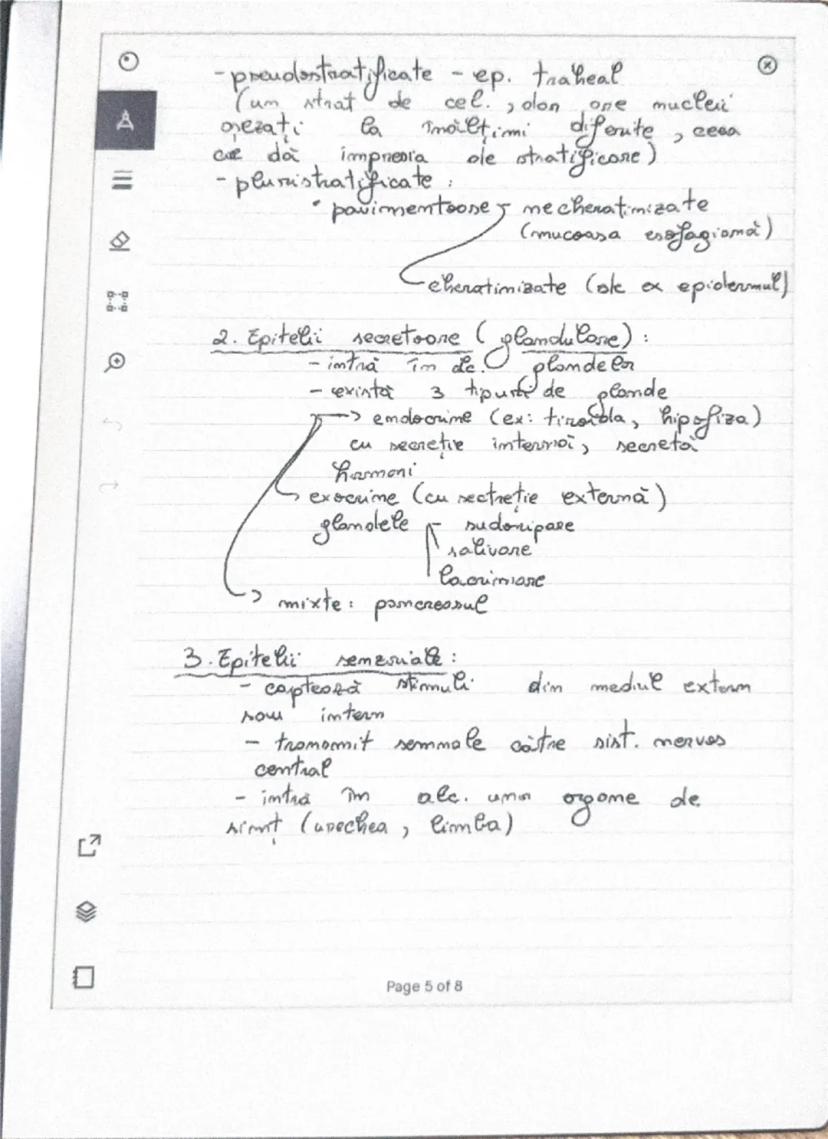 - pseudostratificate - ep. traheal
(un strat de cel., dar are nucleii
așezați la înălțimi diferite, ceea
ce dă impresia de stratificare)
- pluristratificate:
• pavimentoase - necheratinizate
(mucoasa esofagiană)
cheratinizate (de ex epidermul)
2. Epitelii secretoare (glandulare):
- intră în alc. glandelor
- există 3 tipuri de glande
→ endocrine (ex: tiroida, hipofiza)
cu secreție internă, secretă
hormoni
exocrine (cu sectreție externă)
glandele - sudoripare
salivare
lacrimare
→ mixte: pancreasul
3. Epitelii senzoriale:
- captează stimuli din mediul extern
sau intern
- transmit semnale către sist. nervos
central
- intră în alc. unor organe de
simț (urechea, limba)
Page 5 of 8